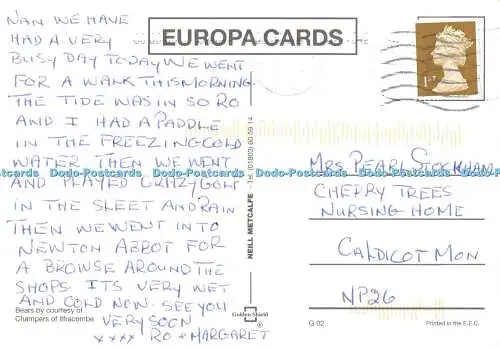 NAN WE HAVE
HAD A VERY
BUSY DAY TODAY WE WENT
FOR A WANK THIS MORNING
THE TIDE WAS IN SO RO
AND I HAD A PADDLE
IN THE FREEZING COLD
WATER THEN WE WENT
AND PLAYED CRAZY GOLF
IN THE SLEET AND RAIN
THEN WE WENT INTO
NEWTON ABBOT FOR
A BROWSE AROUND THE
SHOPS ITS VERY WET
AND COLD NOW. SEE YOU
VERY SOON
xxxx RO + MARGARET
Bears by courtesy of
Champers of Ilfracombe
EUROPA CARDS
NEILL METCALFE - Tel. (01803) 60 59 14
Golden Shield
®
1st
MRS PEARL STOCKHAM
CHERRY TREES
NURSING HOME
CALDICOT MON
NP26
G-02
Printed in the E.E.C.
Dodo-Postcards Dodo-Postcards Dodo-Postcards Dodo-Postcards Dodo-Postcards
Dodo-Postcards Dodo-Postcards Dodo-Postcards Dodo-Postcards Dodo-Postcards